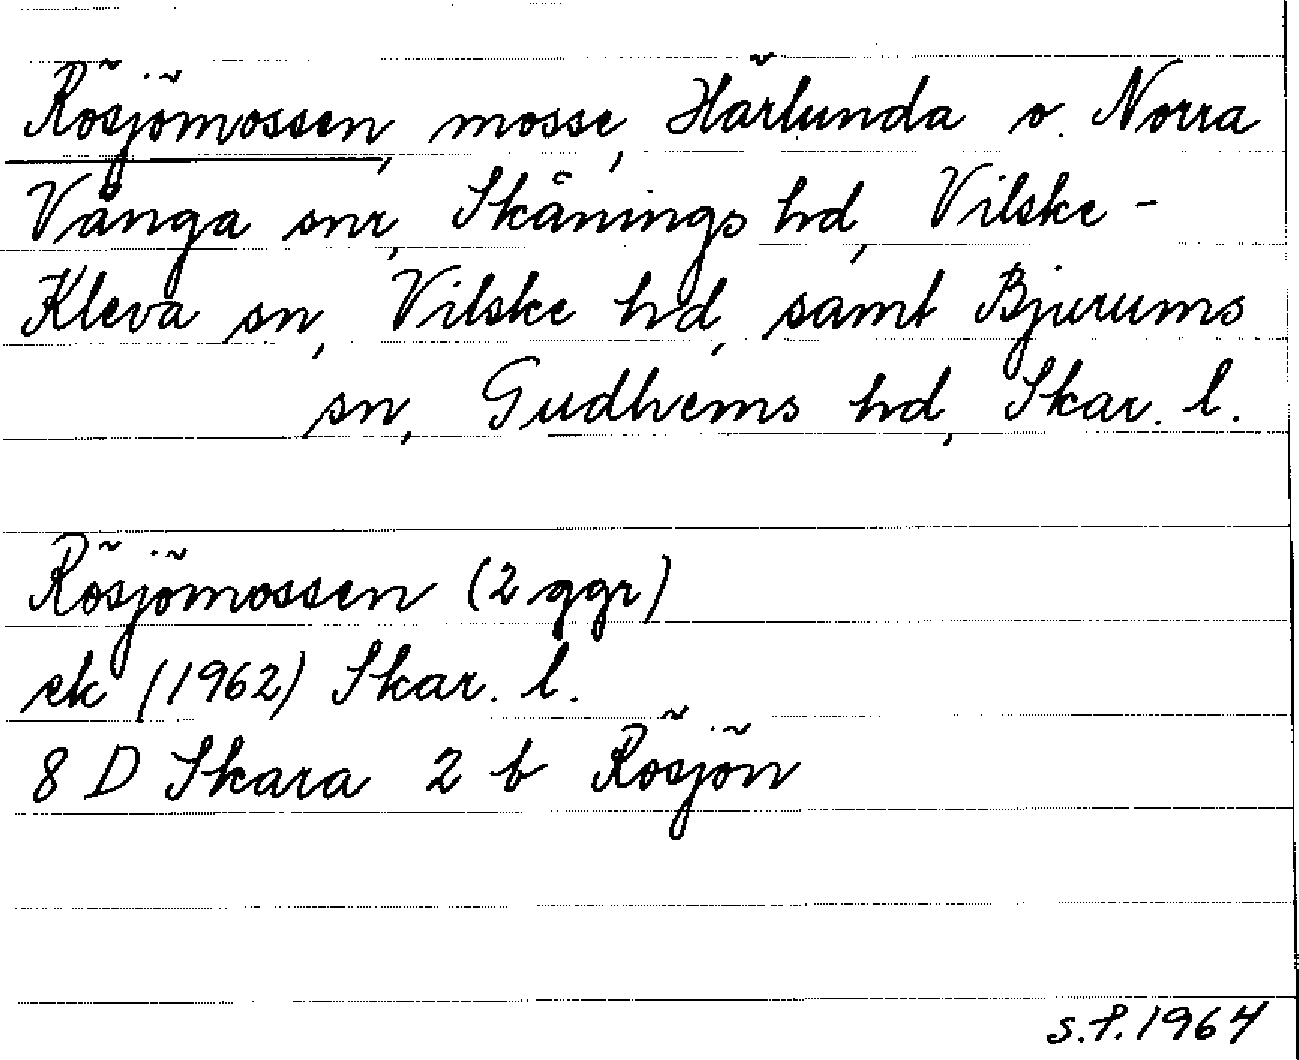 Rösjömossen, mosse, Härlunda o. Norra
Vånga snr, Skånings hd, Vilske-
Kleva sn, Vilske hd, samt Bjurums
sn, Gudhems hd, Skar. l.
Rösjömossen (2 ggr)
ek (1962) Skar. l.
8 D Skara 2 b Rösjön
S.F. 1964